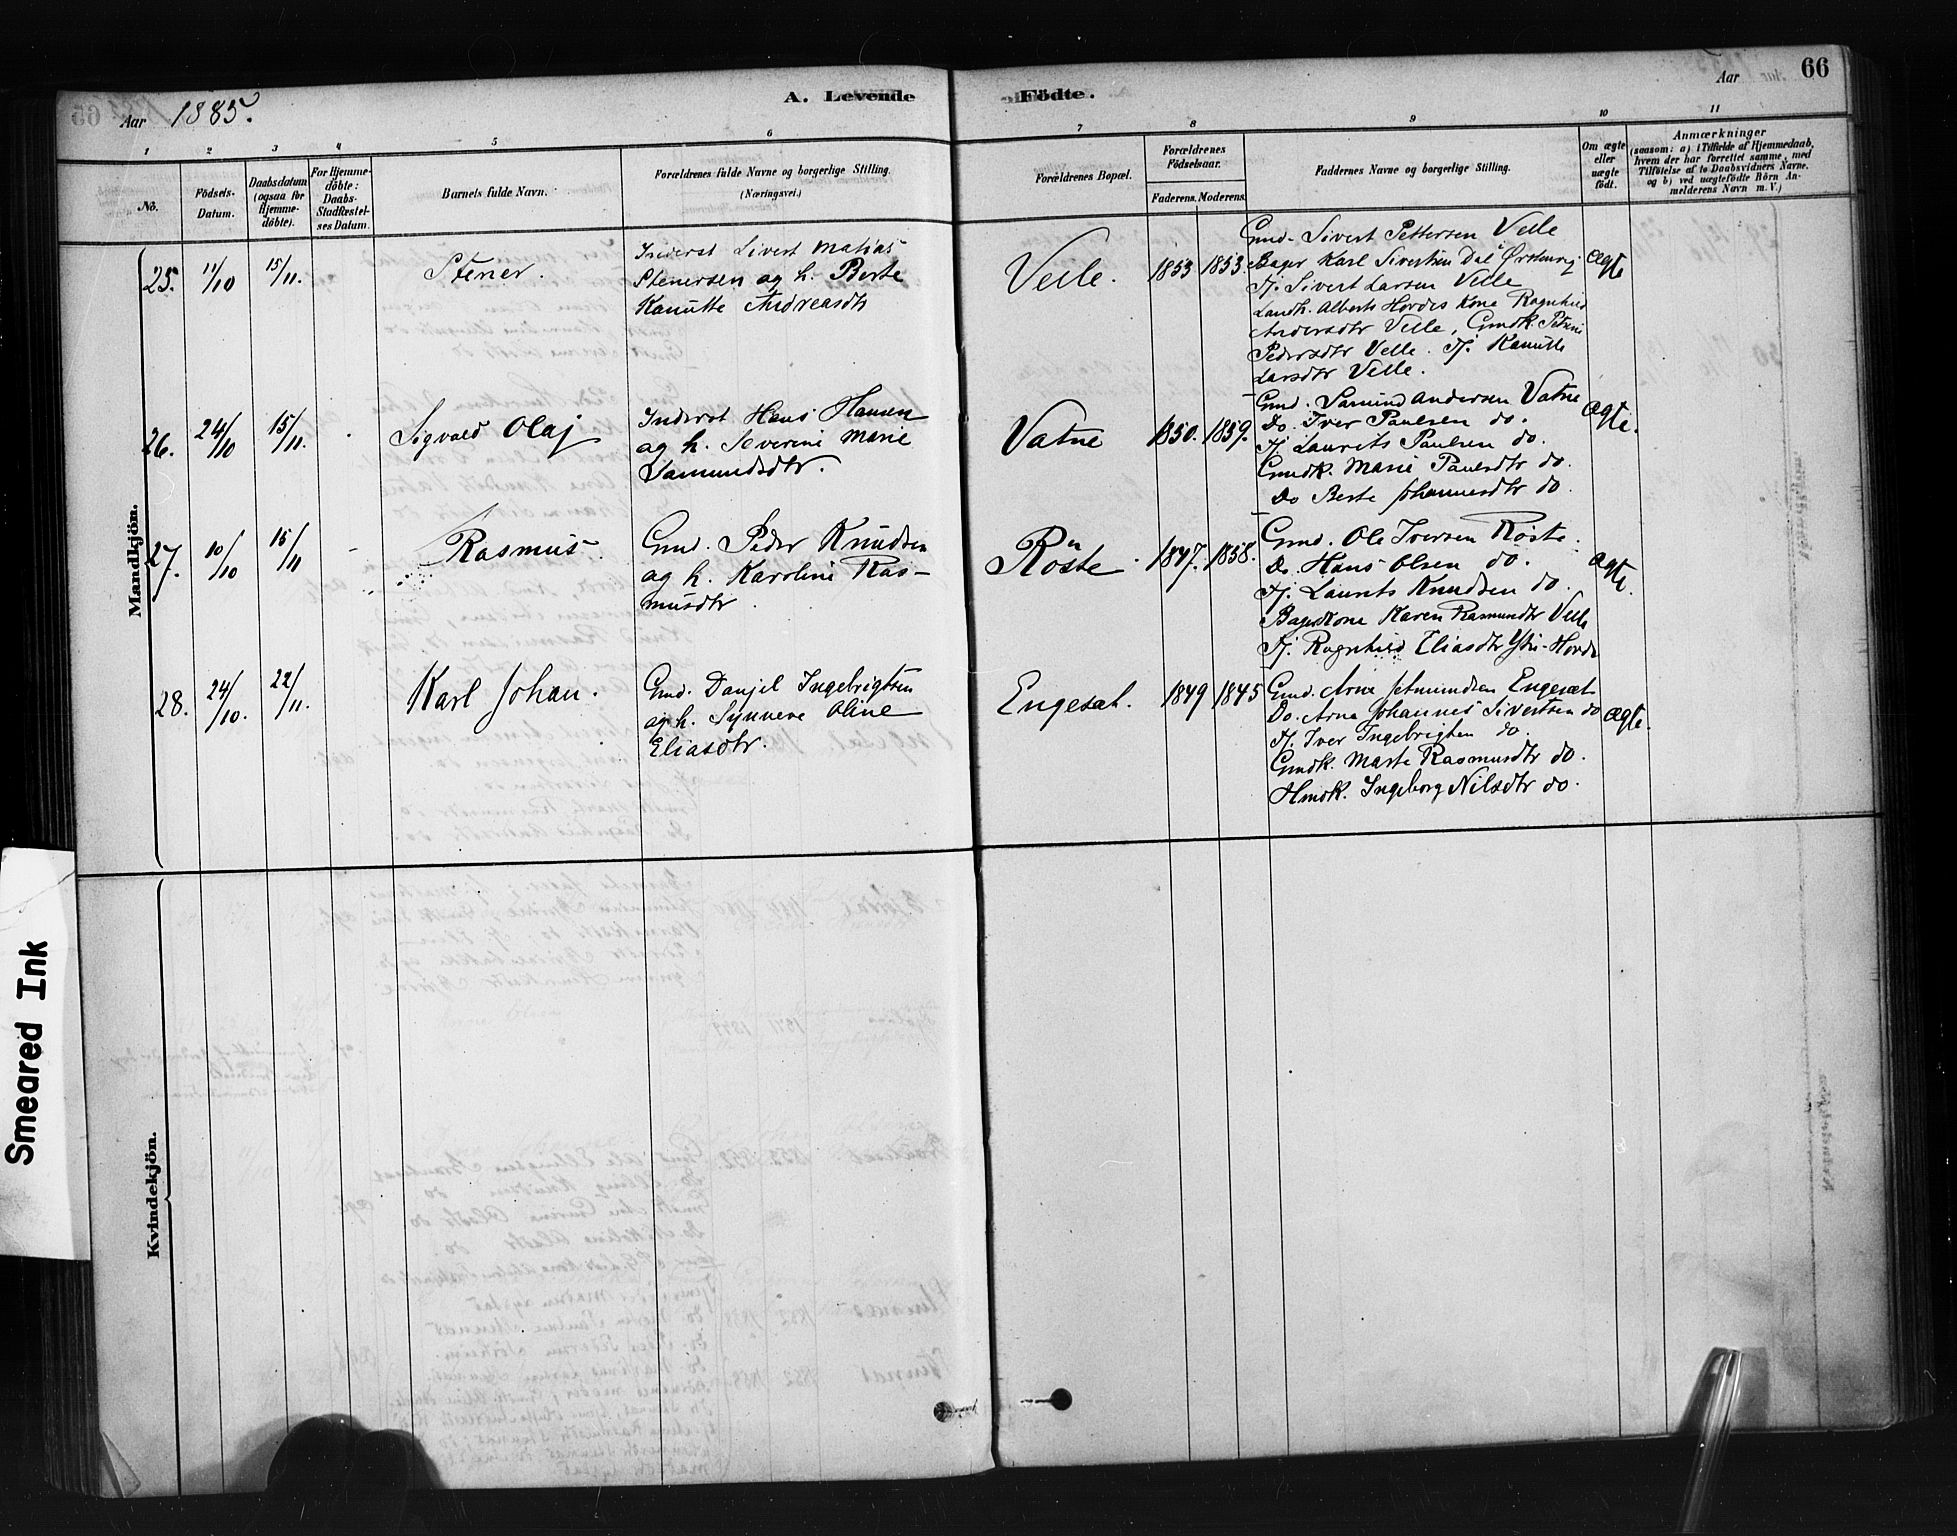 66
Aar 1885.
A. Levende Födte.
Aar
1 2 3 4 5 6 7 8 9 10 11
No.
Födsels-Datum.
Daabsdatum (ogsaa for Hjemme-döbte).
For Hjemme-döbte: Daabs-Stadfæstel-ses Datum.
Barnets fulde Navn.
Forældrenes fulde Navne og borgerlige Stilling. (Næringsvei.)
Forældrenes Bopæl.
Forældrenes Födselsaar.
Faderens. Moderens.
Faddernes Navne og borgerlige Stilling.
Om ægte eller uægte födt.
Anmærkninger
(saasom: a) i Tilfælde af Hjemmedaab, hvem der har forrettet samme, med Tilföielse af to Daabsvidners Navne, og b) ved uægtefödte Börn An-melderens Navn m. V.)
Mandkjön.
25. 11/10 15/11. Stener.
Inderst Sivert Matias
Stenersen og h. Berte
Kanutte Andreasdtr
Velle. 1853 1853.
Gmd. Sivert Pettersen Velle
Bager Karl Sivertsen Dal Ørstenvig
Tj. Sivert Larsen Velle
Landh. Alberts Hovdes Kone Ragnhild
Andersdtr Velle, Gmdk. Petrine
Pedersdtr Velle. Tj. Kanutte
Larsdtr Velle.
ægte
26. 24/10 15/11. Sigvald Olaj
Inderst Hans Hansen
og h. Severine Marie
Samundsdtr.
Vatne 1850. 1859.
Gmd. Samund Andersen Vatne
Do. Iver Paulsen do.
Tj. Laurits Paulsen do.
Gmdk. Marie Paulsdtr do.
Do Berte Johannesdtr do.
ægte.
27. 10/10 15/11 Rasmus.
Gmd. Peder Knudsen
og h. Karoline Ras-
musdtr.
Røste. 1847. 1858.
Gmd. Ole Iversen Røste.
Do. Hans Olsen do.
Tj. Laurits Knudsen do.
Bagerkone Karen Rasmusdtr Velle
Tj. Ragnhild Eliasdtr Ytre-Hovde
ægte.
28. 24/10. 22/11. Karl Johan.
Gmd. Danjel Ingebrigtsen
og h. Synneve Oline
Eliasdtr.
Engeset. 1849 1845
Gmd. Arne Amundsen Engeset
Do. Arne Johannes Sivertsen do
Tj. Iver Ingebrigtsen do.
Gmdk. Marte Rasmusdtr do.
Hmdk. Ingeborg Nilsdtr do.
ægte.
Kvindekjön.
Smeared Ink